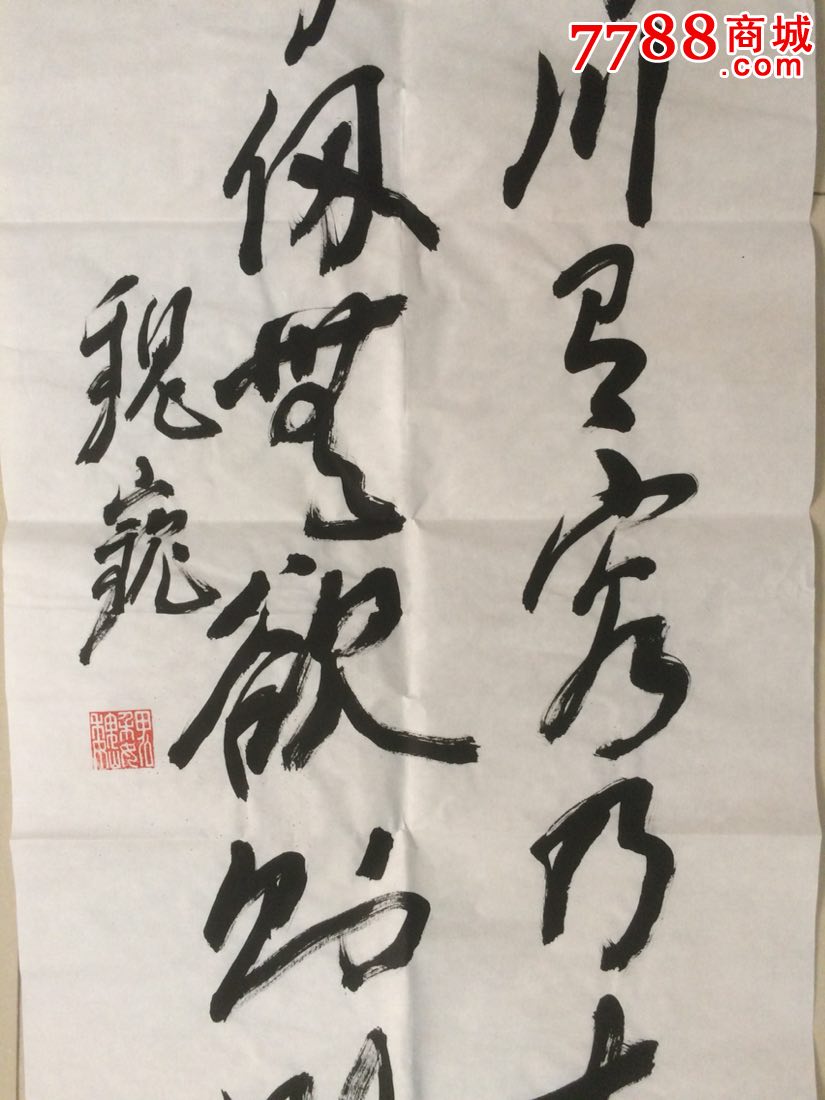 7788商城
.com
川有容乃大
仞無欲則剛
魏巍